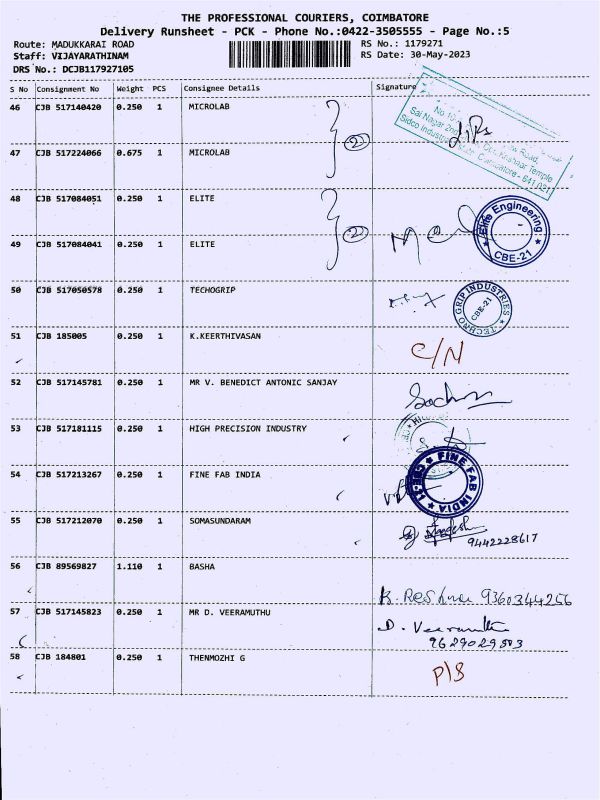 THE PROFESSIONAL COURIERS, COIMBATORE
Delivery Runsheet - PCK - Phone No.:0422-3505555 - Page No.:5
Route: MADUKKARAI ROAD RS No.: 1179271
Staff: VIJAYARATHINAM RS Date: 30-May-2023
DRS No.: DCJB117927105
S No Consignment No Weight PCS Consignee Details Signature
46 CJB 517140420 0.250 1 MICROLAB
2
47 CJB 517224066 0.675 1 MICROLAB
Sidco Coimbatore - 641 021
48 CJB 517084051 0.250 1 ELITE
2
Elite Engineering
CBE-21
49 CJB 517084041 0.250 1 ELITE
50 CJB 517050578 0.250 1 TECHOGRIP
TECHNO GRIP INDUSTRIES
CBE-21
51 CJB 185005 0.250 1 K.KEERTHIVASAN
C/N
52 CJB 517145781 0.250 1 MR V. BENEDICT ANTONIC SANJAY
53 CJB 517181115 0.250 1 HIGH PRECISION INDUSTRY
54 CJB 517213267 0.250 1 FINE FAB INDIA
FINE FAB INDIA
CBE-21
55 CJB 517212070 0.250 1 SOMASUNDARAM
9442228617
56 CJB 89569827 1.110 1 BASHA
R. Reshma 9360344256
57 CJB 517145823 0.250 1 MR D. VEERAMUTHU
D. Veeramuthu
9629029503
58 CJB 184801 0.250 1 THENMOZHI G
P/S